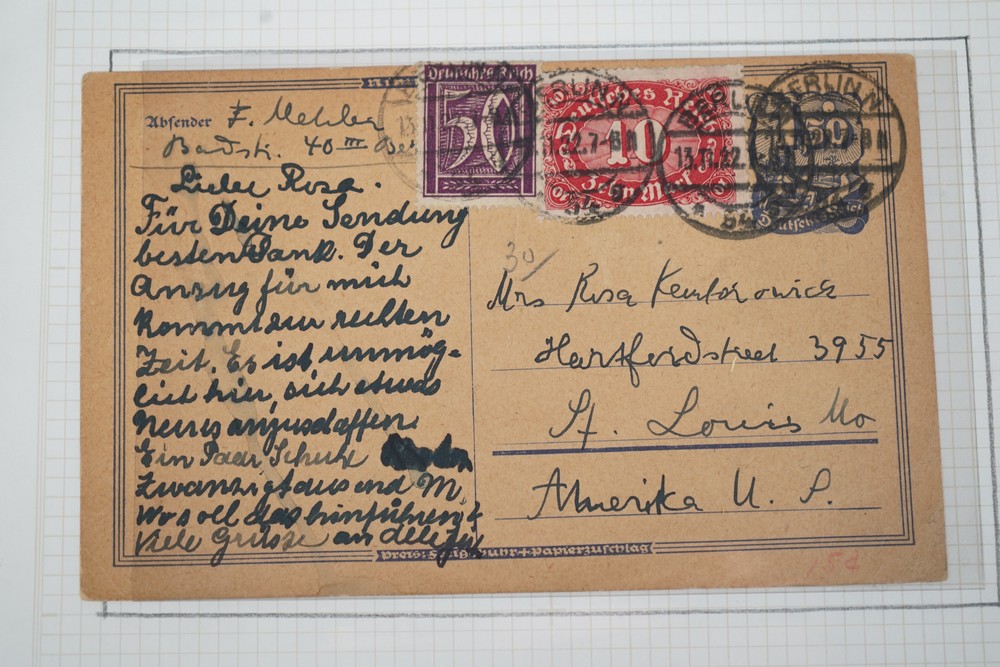 Absender F. Mehlba
Badstr. 40 III Ber
Deutsches Reich
50
Deutsches Reich
10
Zehn Mark
BERLIN N
13.11.22.7-8 N
54
50
Deutsches Reich
Lieber Rosa.
Für Deine Sendung
besten Dank. Der
Anzug für mich
kommt zur rechten
Zeit. Es ist unmög-
lich hier, sich etwas
Neues anzuschaffen.
Ein Paar Schuhe
Zwanzigtausend M.
Wo soll das hinführen?
Viele Grüsse an alle
30/
Mrs Rosa Kentorowicz
Hartfordstreet 3955
St. Louis Mo
Amerika U. S.
Papierzuschlag